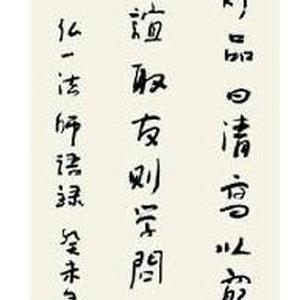 品日清高以
誼取友则学問
弘一法師語録 癸未